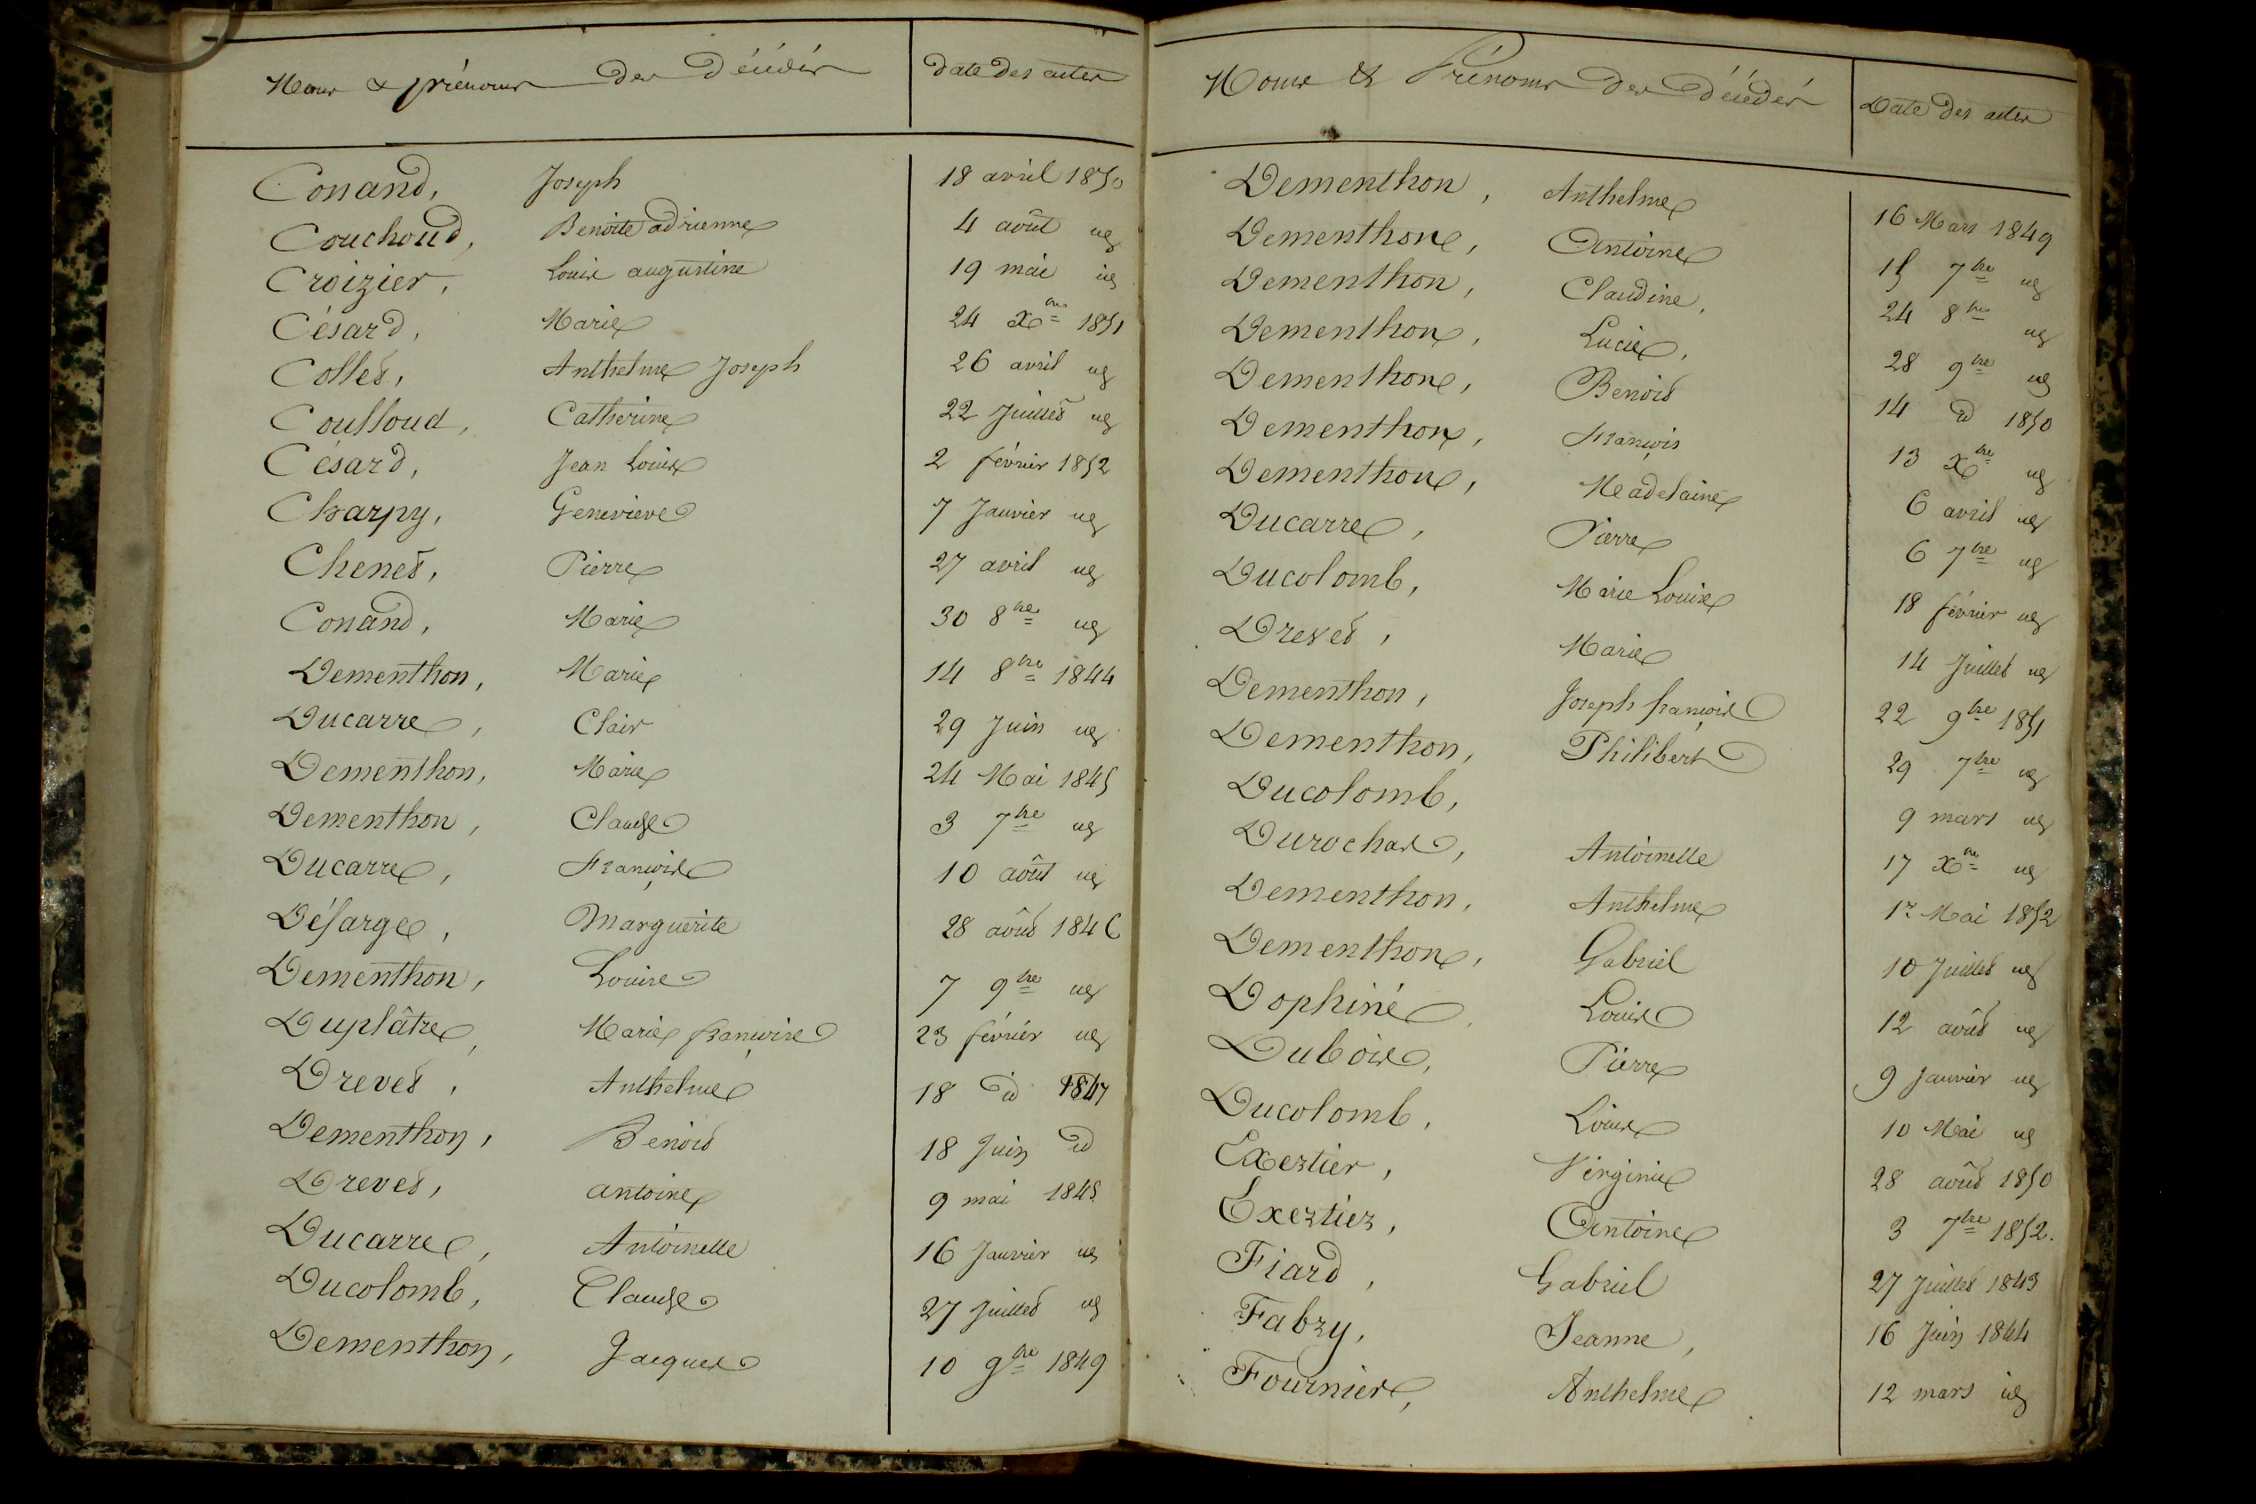 Noms & prénoms des décédés date des actes
Conand, Joseph 18 avril 1850
Couchoud, Benoite adrienne 4 août id
Croizier, Louise augustine 19 mai id
Césard, Marie 24 xbre 1851
Collet, Anthelme Joseph 26 avril id
Coulloud, Catherine 22 Juillet id
Césard, Jean Louis 2 février 1852
Charpy, Genevieve 7 Janvier id
Chenet, Pierre 27 avril id
Conand, Marie 30 8bre id
Dementhon, Marie 14 8bre 1844
Ducarre, Clair 29 Juin id
Dementhon, Marie 24 Mai 1845
Dementhon, Claude 3 7bre id
Ducarre, François 10 août id
Défarge, Marguerite 28 août 1846
Dementhon, Louise 7 9bre id
Duplâtre, Marie françoise 23 février id
Drevet, Anthelme 18 id 1847
Dementhon, Benoit 18 Juin id
Drevet, antoine 9 mai 1848
Ducarre, Antoinette 16 Janvier id
Ducolomb, Claude 27 Juillet id
Dementhon, Jacques 10 9bre 1849
Noms & Prénoms des décédés Date des actes
Dementhon, Anthelme 16 Mars 1849
Dementhon, Antoine 15 7bre id
Dementhon, Claudine, 24 8bre id
Dementhon, Lucie, 28 9bre id
Dementhon, Benoit 14 id 1850
Dementhon, François 13 xbre id
Dementhon, Madelaine 6 avril id
Ducarre, Pierre 6 7bre id
Ducolomb, Marie Louise 18 février id
Drevet, Marie 14 Juillet id
Dementhon, Joseph françois 22 9bre 1851
Dementhon, Philibert 29 7bre id
Ducolomb, 9 mars id
Durochat, Antoinette 17 xbre id
Dementhon, Anthelme 1r Mai 1852
Dementhon, Gabriel 10 Juillet id
Dophiné, Louis 12 août id
Dubois, Pierre 9 Janvier id
Ducolomb, Louis 10 Mai id
Exertier, Virginie 28 août 1850
Exertier, Antoine 3 7bre 1852.
Fiard, Gabriel 27 Juillet 1843
Fabry, Jeanne, 16 Juin 1844
Fournier, Anthelme 12 mars id